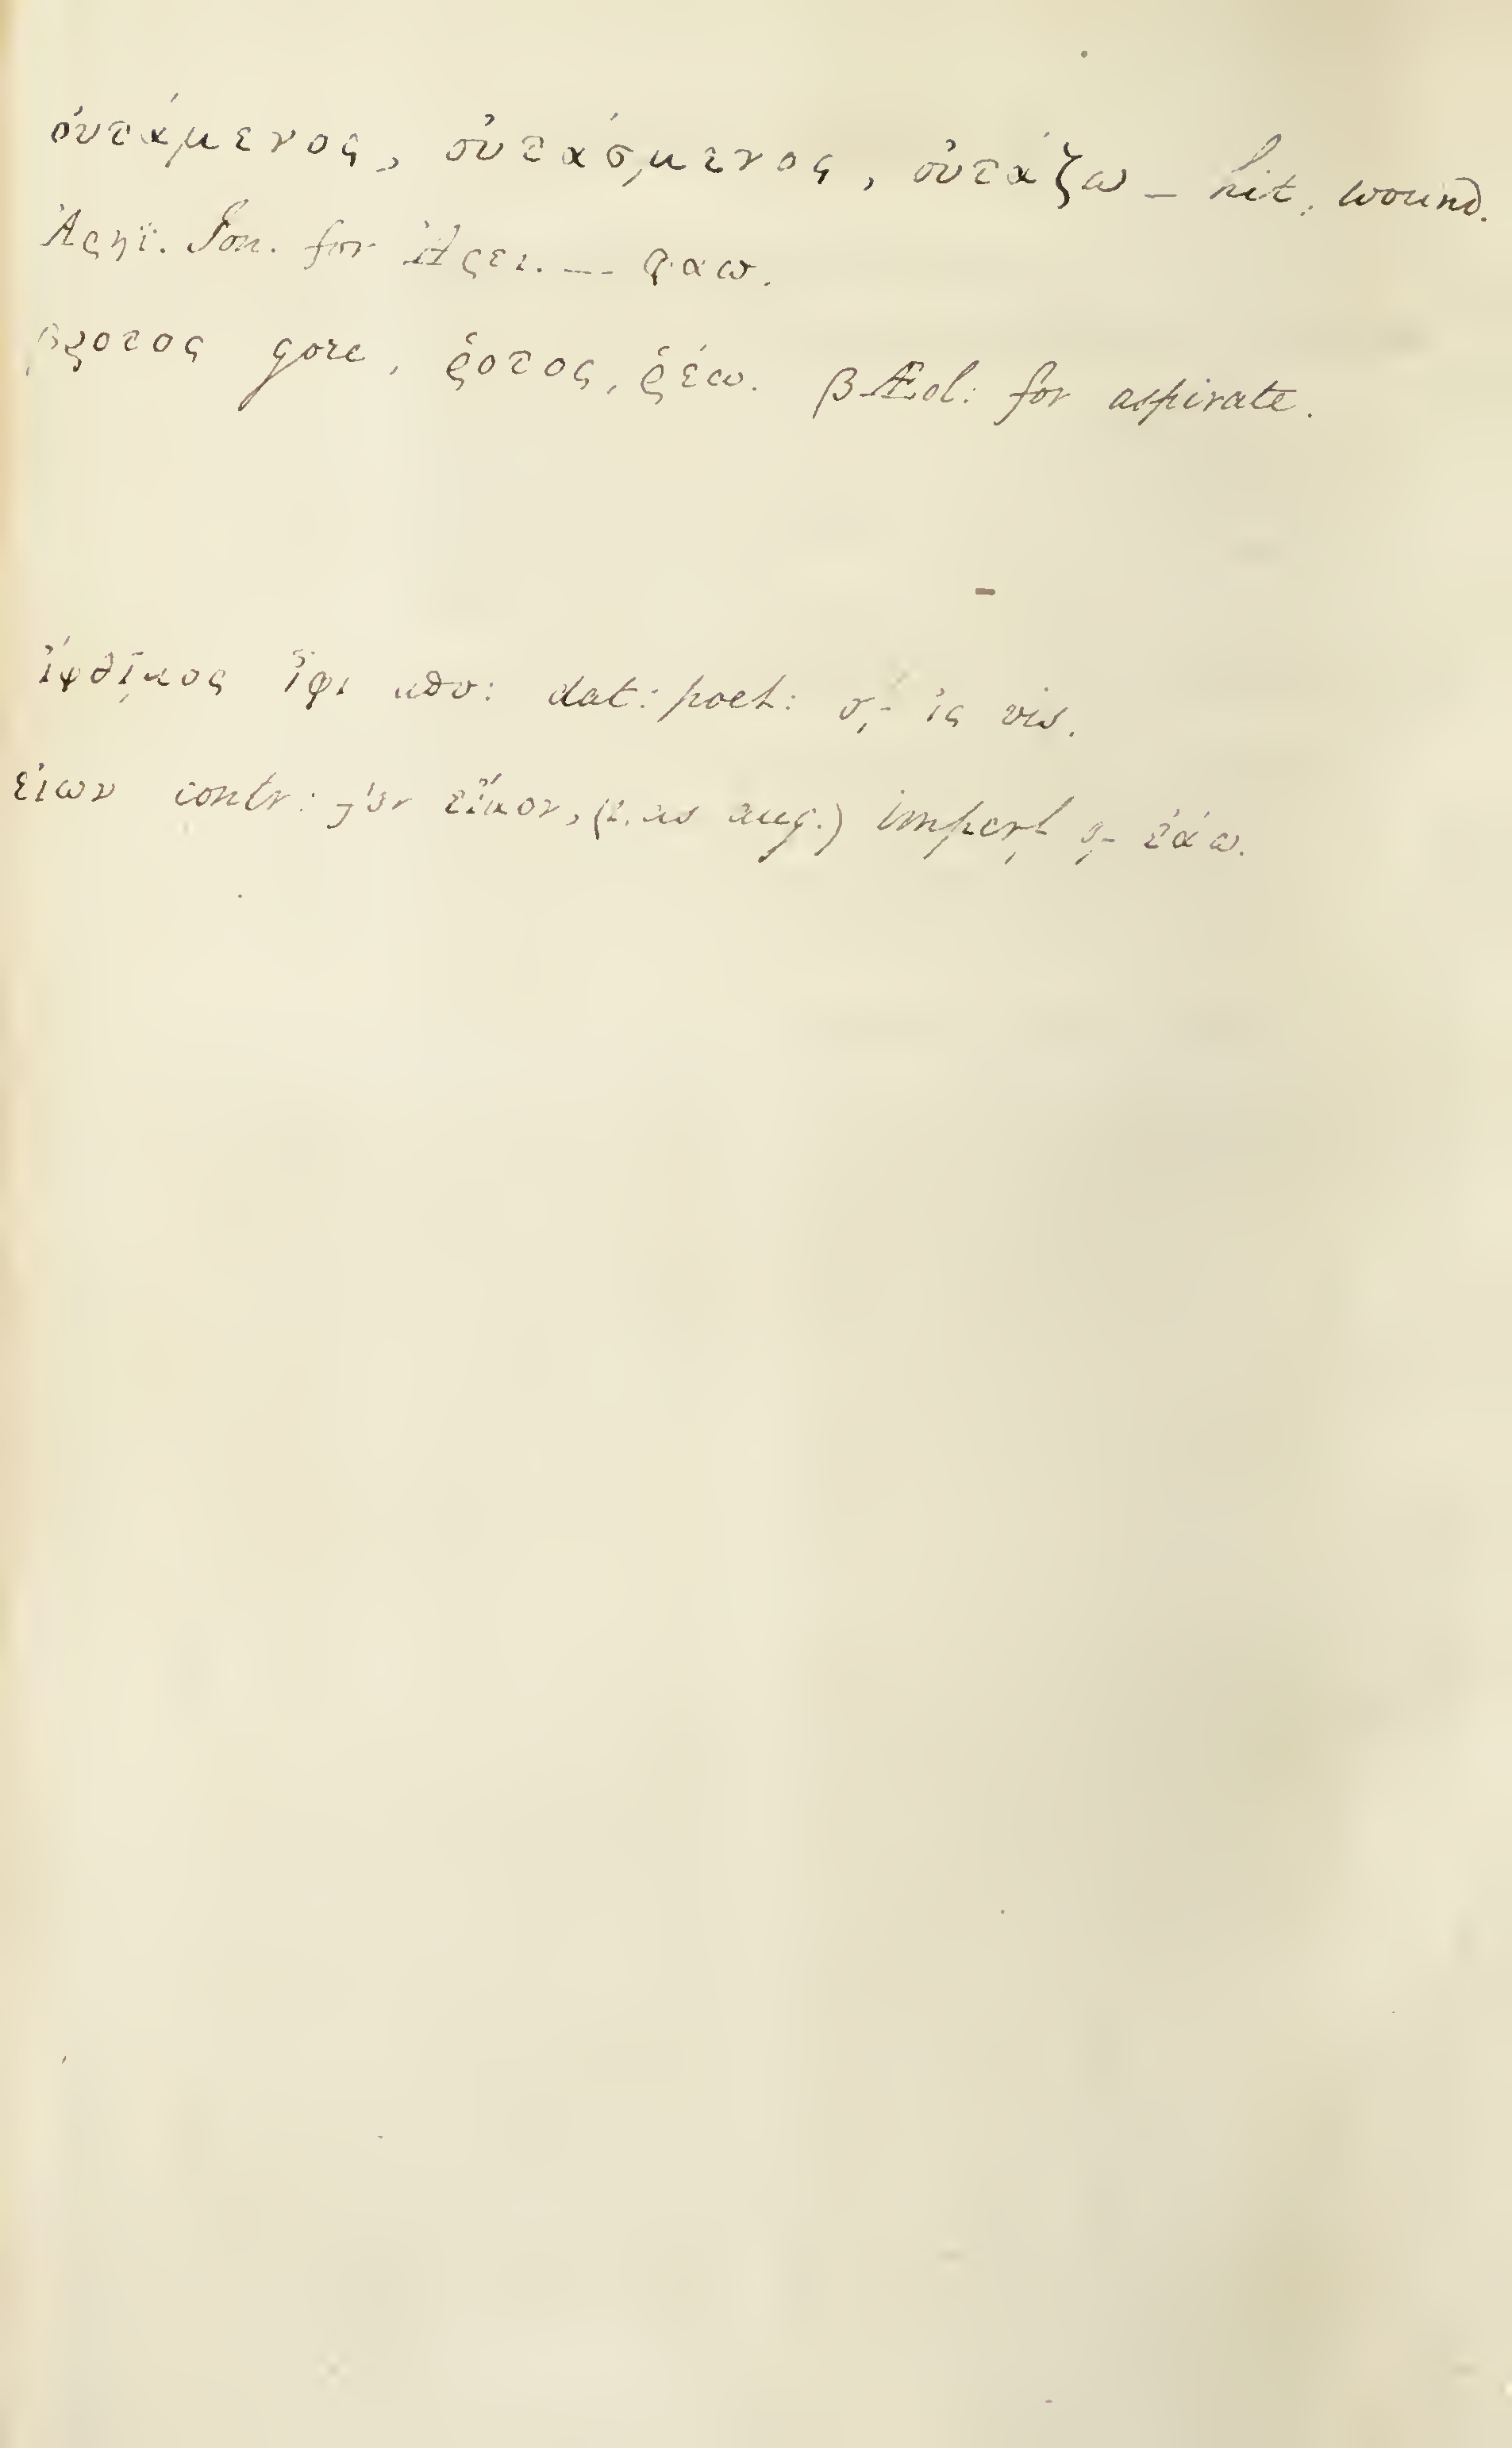 οὐτάμενος, οὐτάσμενος, οὐτάζω – hit, wound.
Ἄρηϊ. Ion. for Ἄρει. — φαω.
βροτος gore, ῥοτος, ῥέω. β Æol: for aspirate.
ἴφθιμος ἶφι dat: poet: ἰς vis.
εἴων contr: for εἴαον, (ε. as aug.) imperf ἐάω.